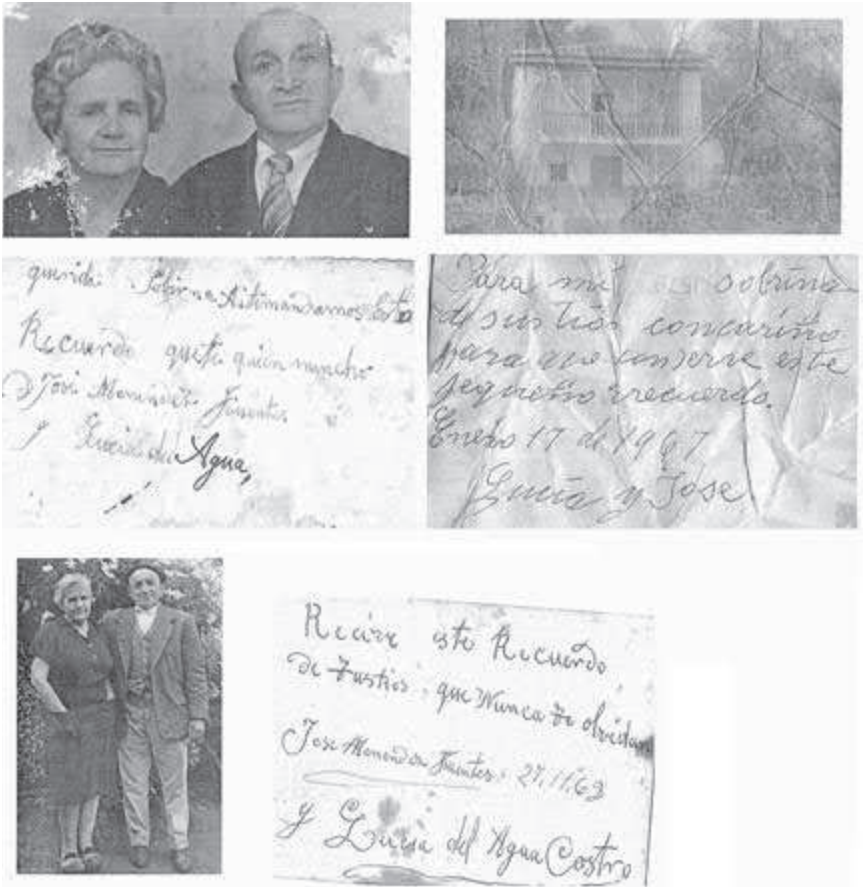 querida Sobirna Atimandamos Esto
Recuerdo queti quien muncho
José Menéndez Fuentes
y Lucía del Agua,
Para mi sobrina
de sus tios concariño
para que conserve este
pequeño rrecuerdo.
Enero 17 de 1967
Lucía y Jose
Recive este Recuerdo,
de Tustios, que Nunca Te olvidan
Jose Menendez Fuentes. 27,11,63
y Lucia del Agua Castro